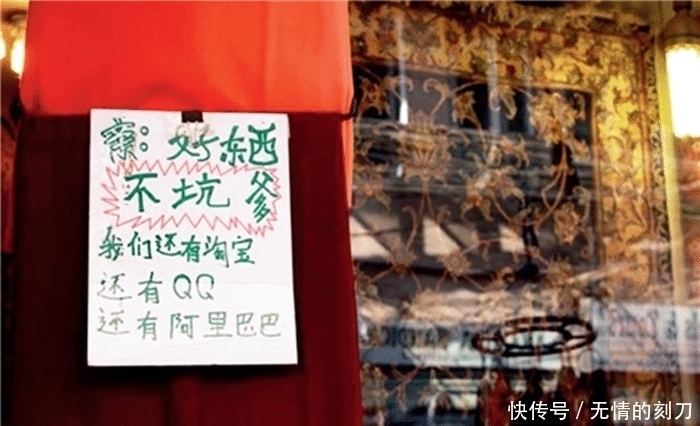 亲：好东西
不坑爹
我们还有淘宝
还有QQ
还有阿里巴巴
快传号/无情的刻刀